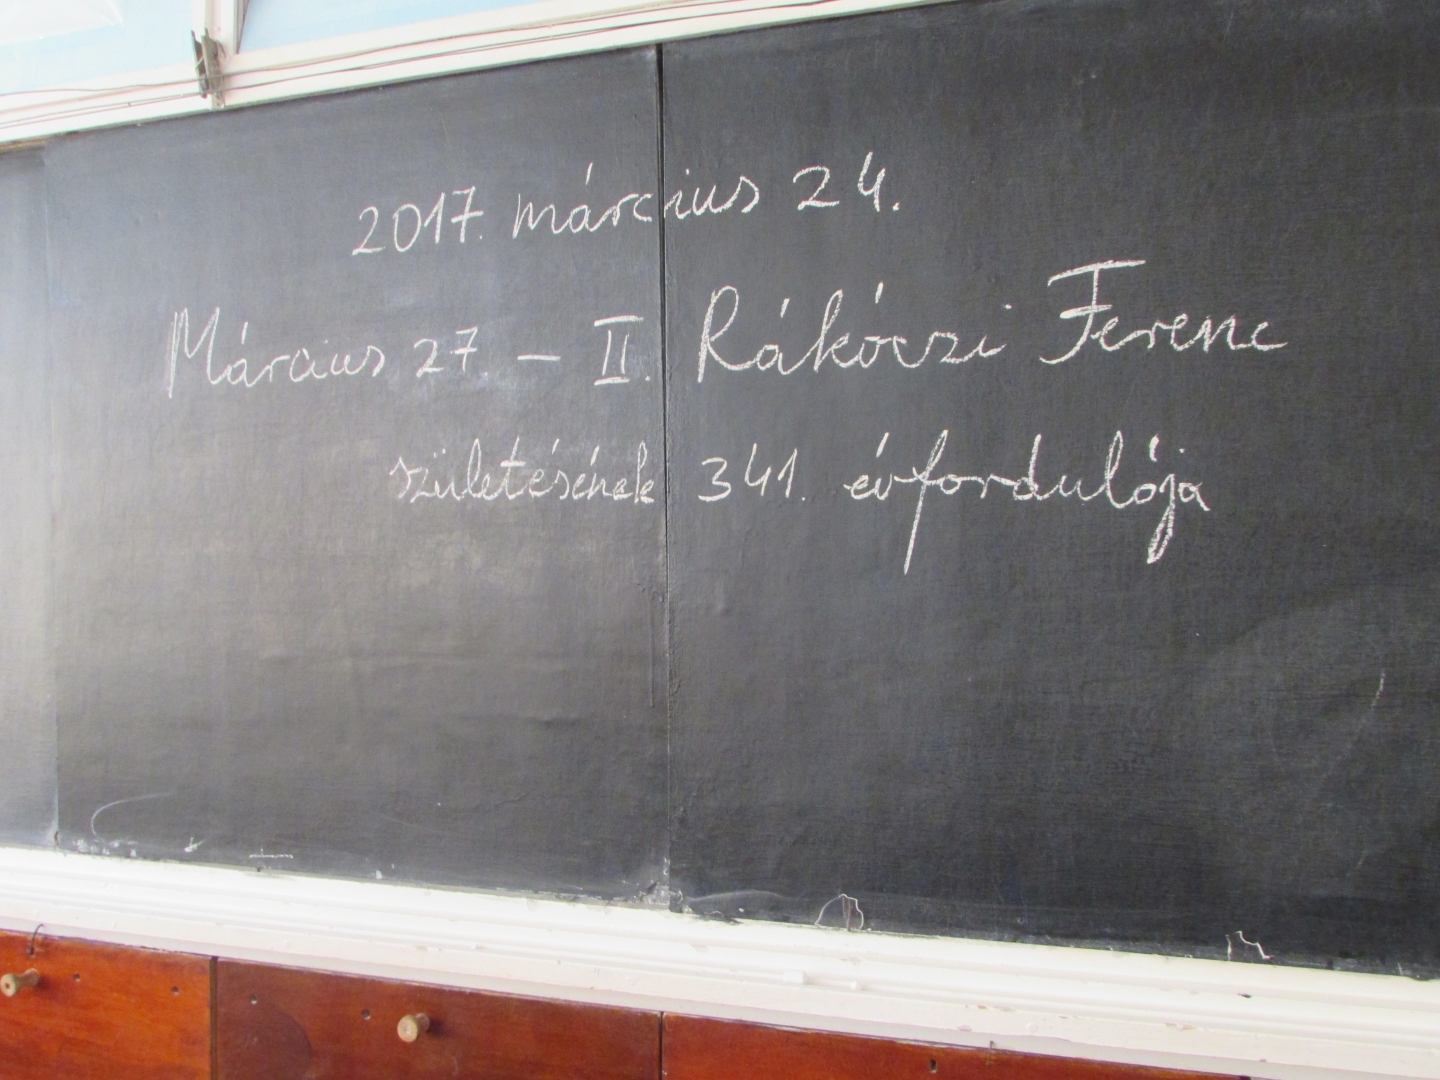 2017. március 24.
Március 27. – II. Rákóczi Ferenc
születésének 341. évfordulója